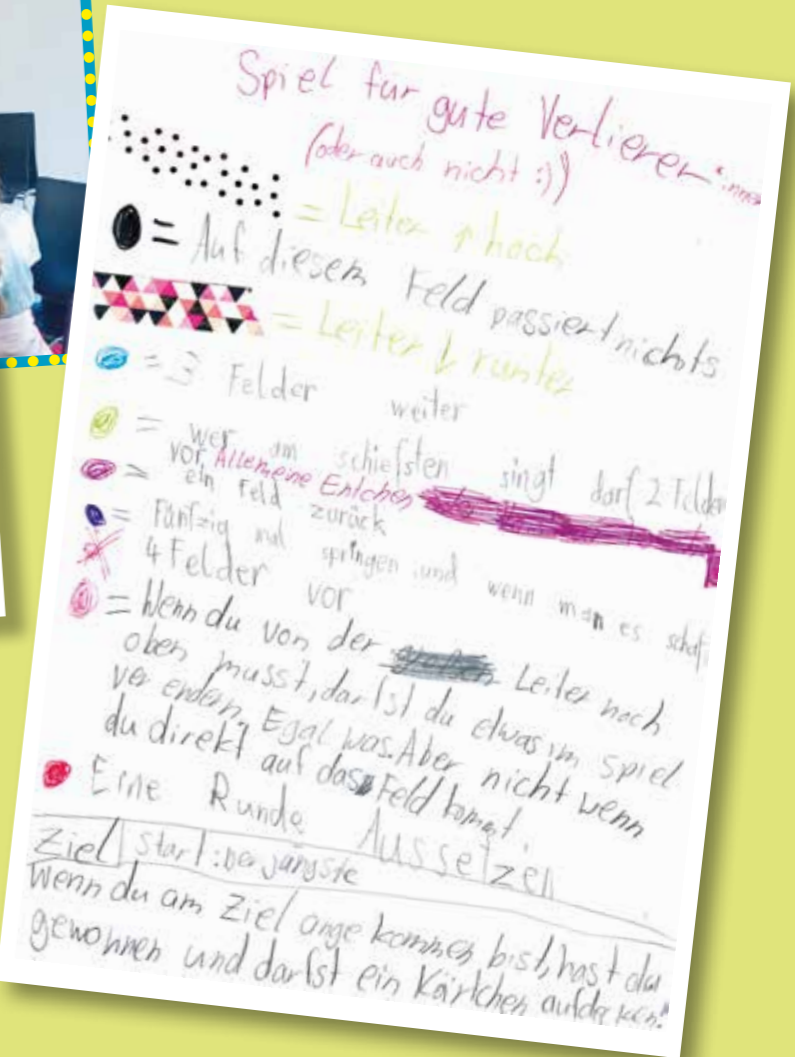 Spiel für gute Verlierer*innen
(oder auch nicht :))
= Leiter ↑ hoch
= Auf diesem Feld passiert nichts
= Leiter ↓ runter
= 3 Felder weiter
= wer am schiefsten singt darf 2 Felder
vor Allemeine Entchen
= ein Feld zurück
= Fünfzig mal springen und wenn man es schaf
4 Felder vor
= Wenn du von der Leiter nach
oben musst, darfst du etwas im Spiel
verendern. Egal was. Aber nicht wenn
du direkt auf das Feld komst.
Eine Runde Aussetzen
Ziel Start: Der jüngste
Wenn du am Ziel angekommen bist, hast du
gewonnen und darfst ein Kärtchen aufdecken!